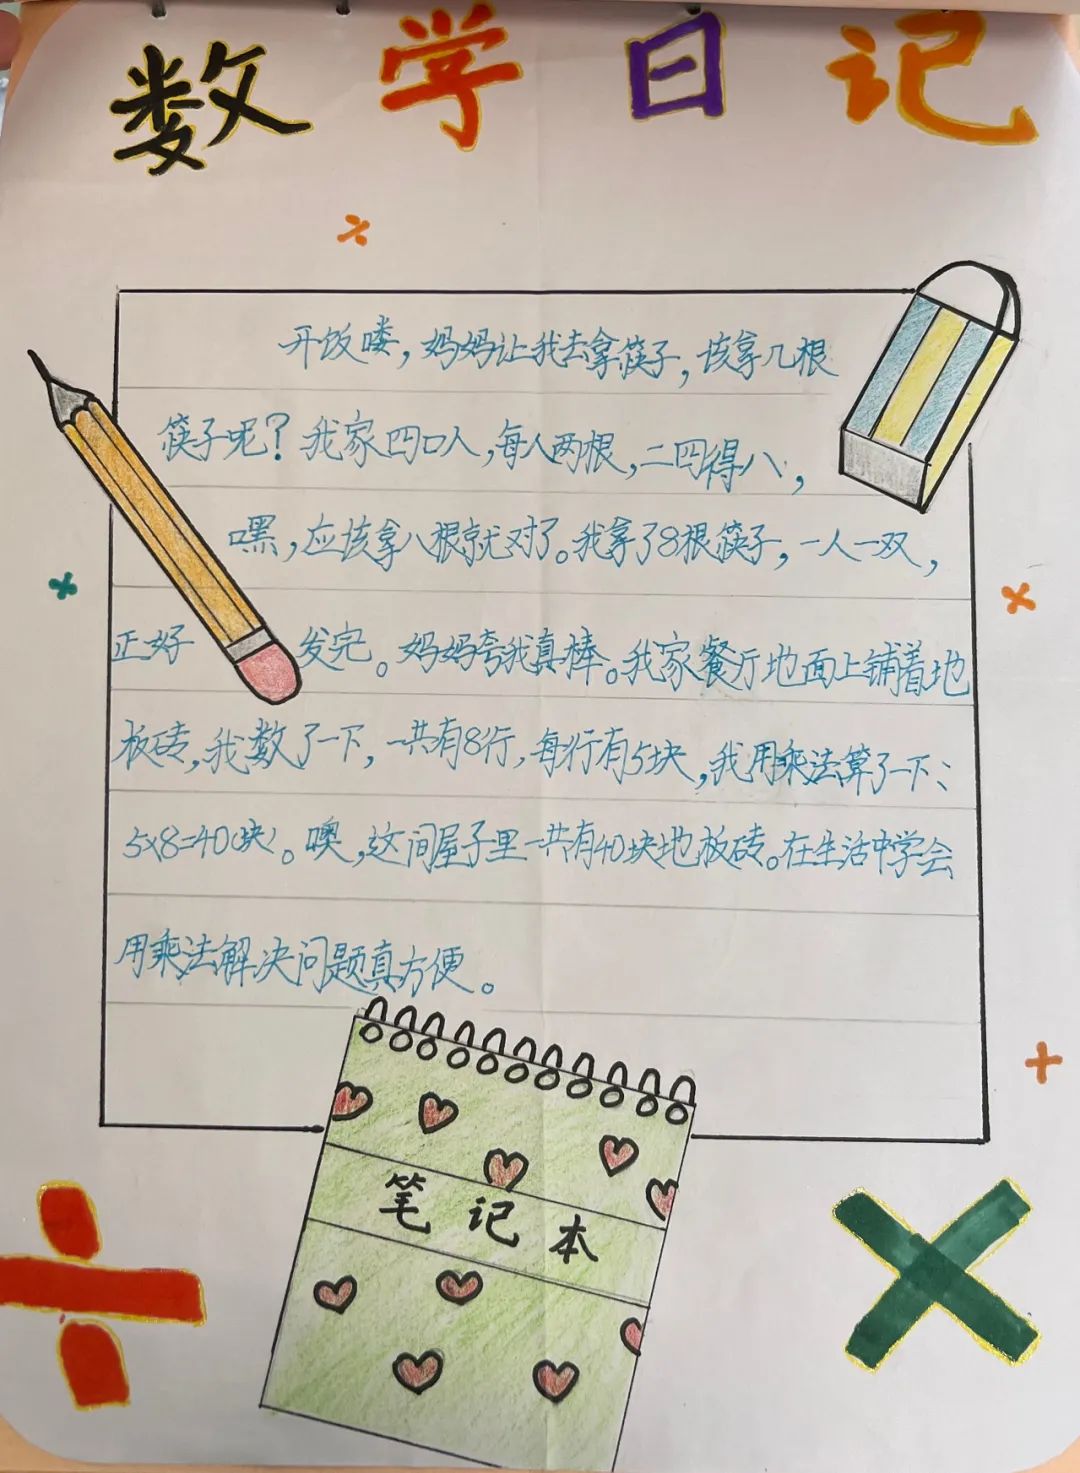 数学日记
开饭喽，妈妈让我去拿筷子，该拿几根
筷子呢？我家四口人，每人两根，二四得八，
嘿，应该拿八根就对了。我拿了8根筷子，一人一双，
正好发完。妈妈夸我真棒。我家餐厅地面上铺着地
板砖，我数了一下，一共有8行，每行有5块，我用乘法算了一下：
5×8=40(块)。噢，这间屋子里一共有40块地板砖。在生活中学会
用乘法解决问题真方便。
笔记本